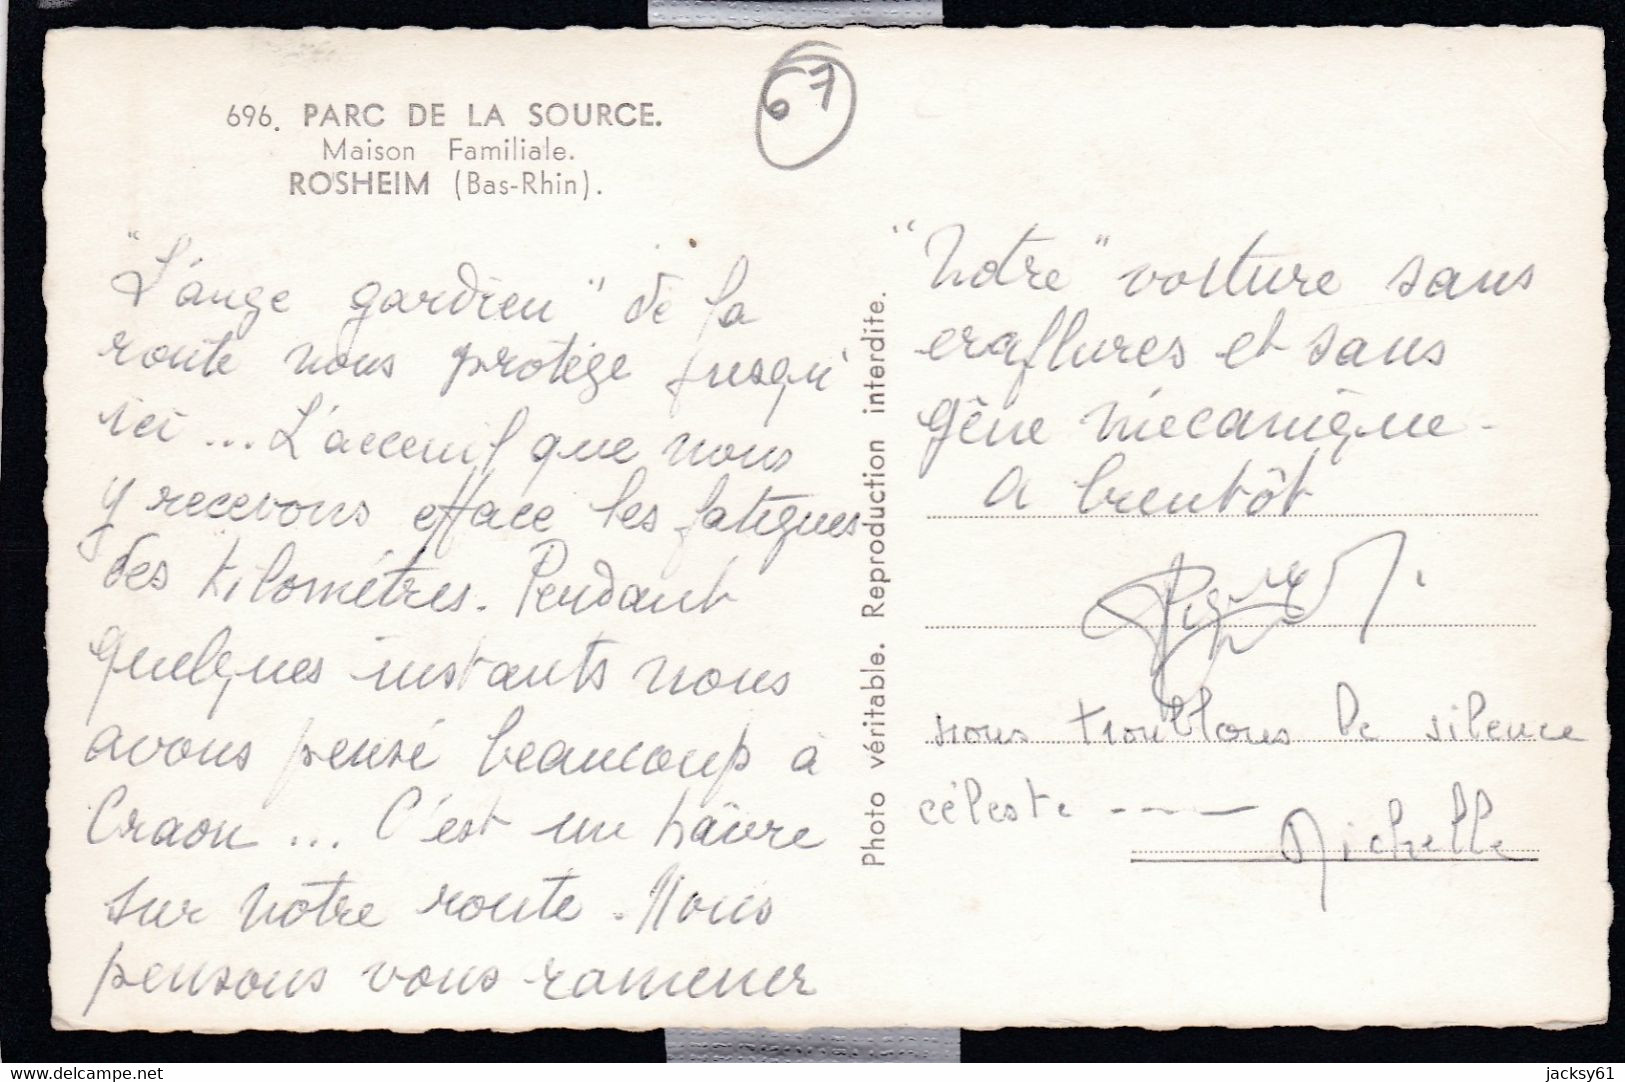 67
696. PARC DE LA SOURCE.
Maison Familiale.
ROSHEIM (Bas-Rhin).
"L'ange gardien" de la
route nous protège jusqu'
ici ... L'acceuil que nous
y recevons efface les fatigues
des kilomètres. Pendant
quelques instants nous
avons pensé beaucoup à
Craon ... C'est un hâvre
sur notre route. Nous
pensons vous ramener
Photo véritable. Reproduction interdite.
"Notre" voiture sans
eraflures et sans
gêne mécanique -
A bientôt
nous troublons le silence
céleste ----
Michelle
delcampe.net
jacksy61